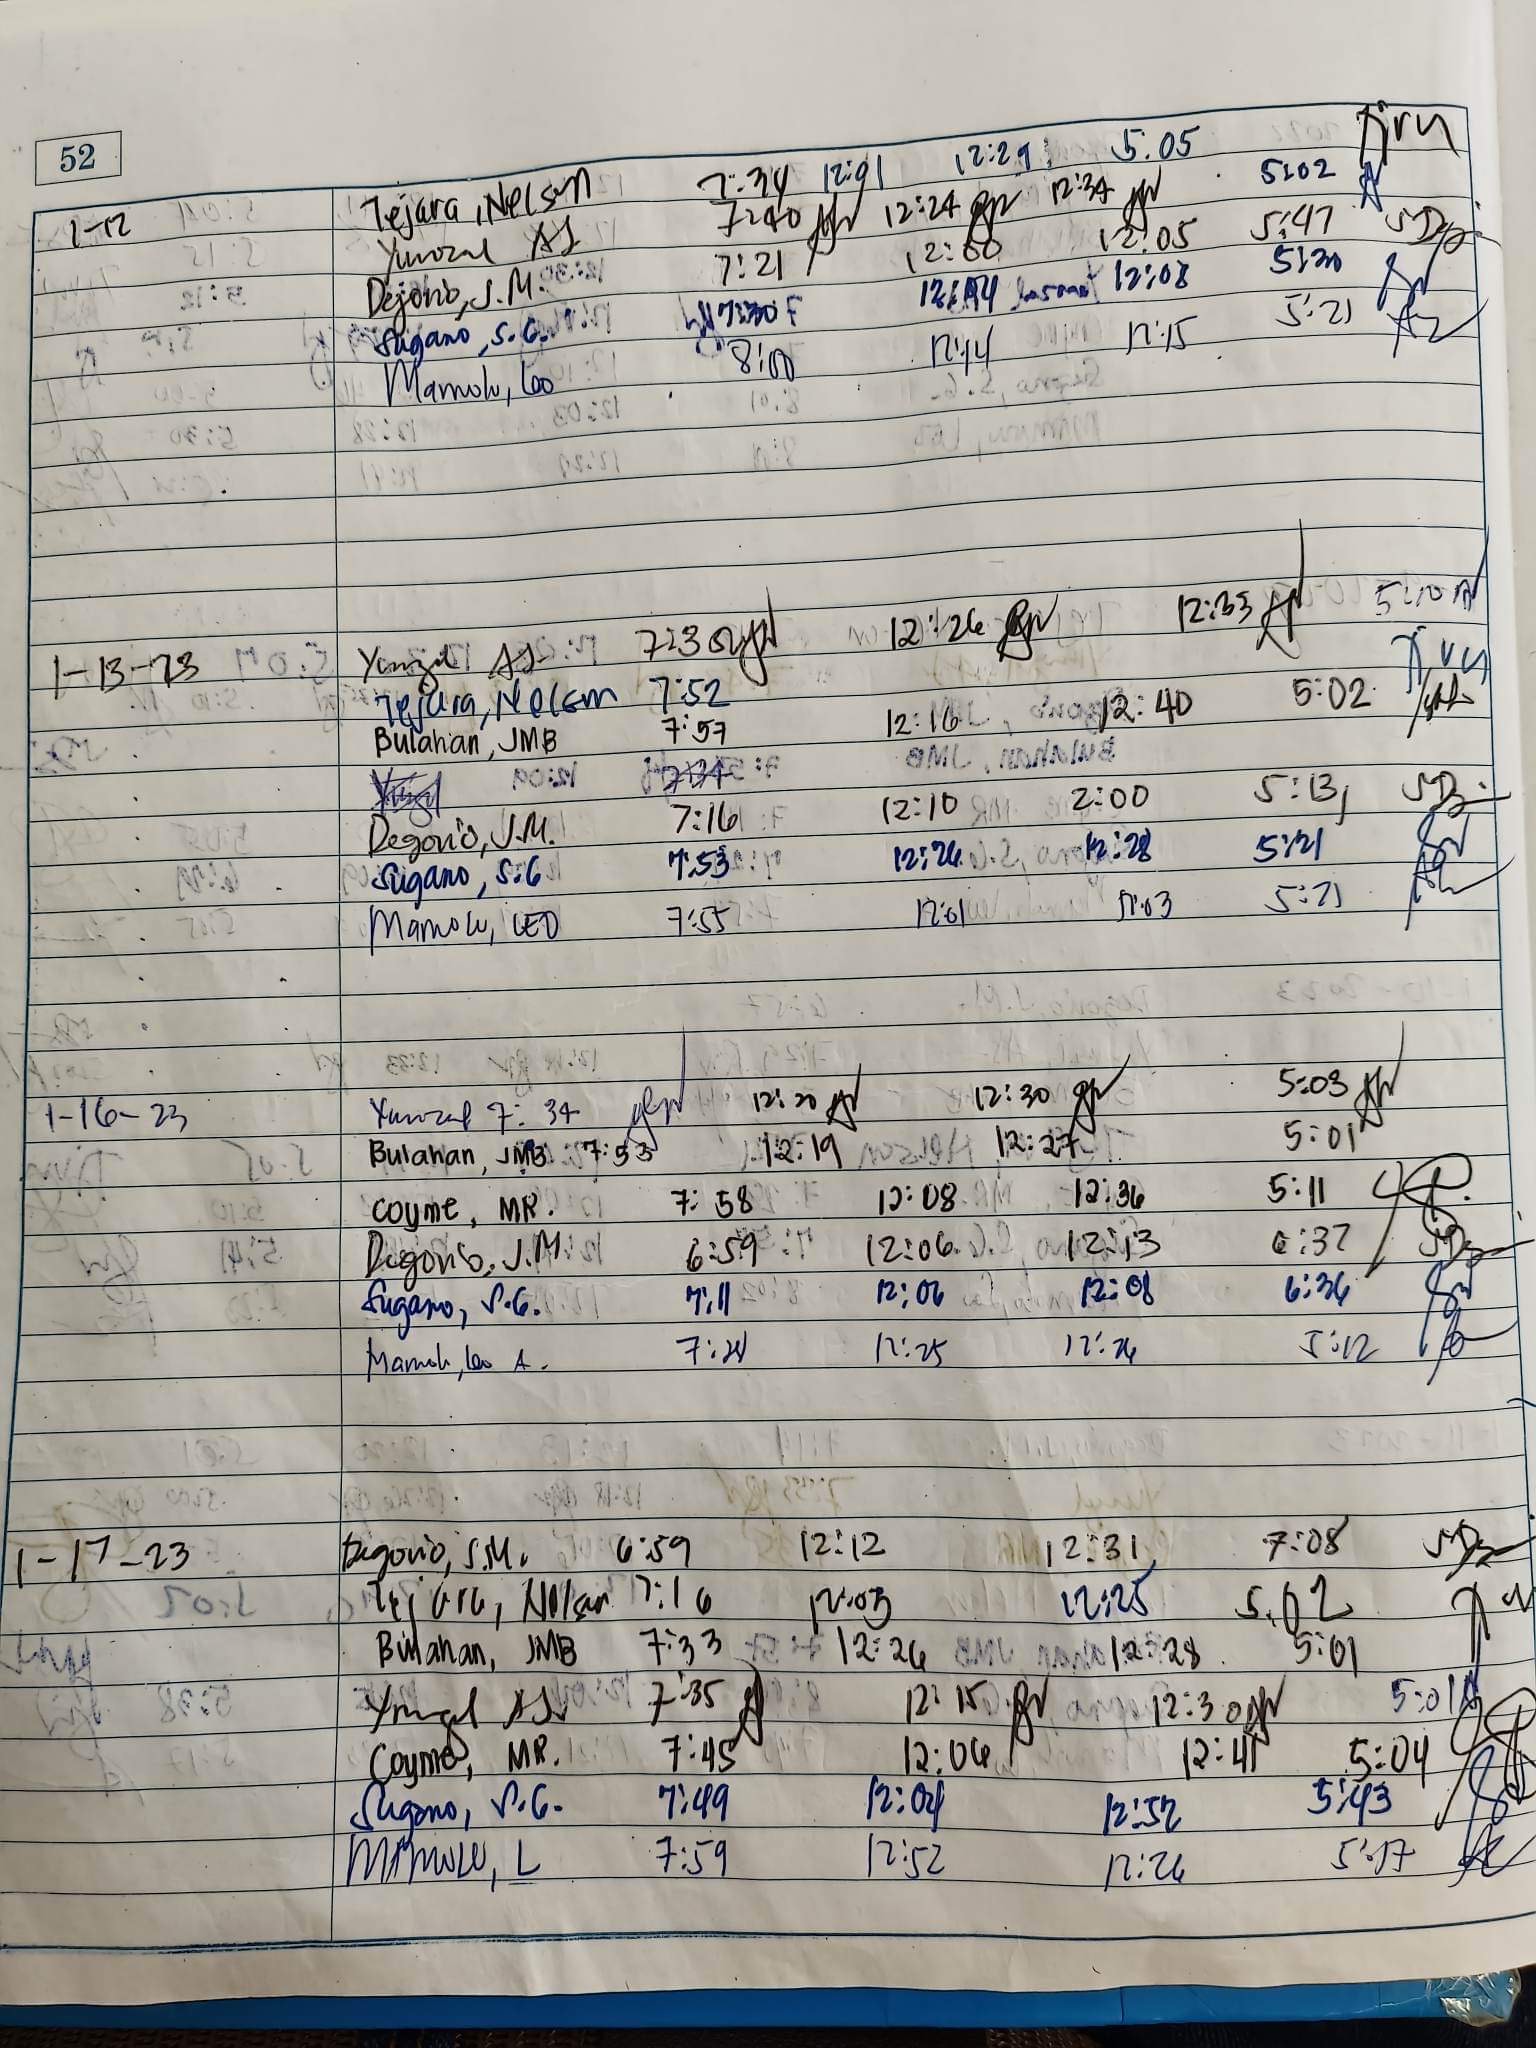 52
1-12 Tejara, Nelson 7:34 12:01 12:29 5:05
Yunzal AJ 7:40 12:24 12:34 5:02
Degorio, J.M. 7:21 12:00 12:05 5:47
Sugano, S.G. 7:30 12:04 12:08 5:20
Mamolo, Leo 8:00 12:14 12:15 5:21
1-13-23 Yunzal AJ 7:30 12:26 12:33 5:10
Tejara, Nelson 7:52
Bulahan, JMB 7:57 12:16 12:40 5:02
Degorio, J.M. 7:16 12:10 2:00 5:13
Sugano, S.G 7:53 12:26 12:28 5:21
Mamolo, LEO 7:55 12:01 12:03 5:21
1-16-23 Yunzal 7:34 12:20 12:30 5:03
Bulahan, JMB 7:53 12:19 12:27 5:01
Coyme, MR. 7:58 12:08 12:36 5:11
Degorio, J.M. 6:59 12:06 12:13 6:37
Sugano, S.G. 7:11 12:06 12:08 6:36
Mamolo, Leo A. 7:24 12:25 12:26 5:12
1-17-23 Degorio, J.M. 6:59 12:12 12:31 7:08
Tejara, Nelson 7:16 12:03 12:25 5:02
Bulahan, JMB 7:33 12:26 12:28 5:01
Yunzal AJ 7:35 12:15 12:30 5:01
Coyme, MR. 7:45 12:06 12:41 5:04
Sugano, S.G. 7:49 12:04 12:52 5:43
Mamolo, L 7:59 12:52 12:26 5:17